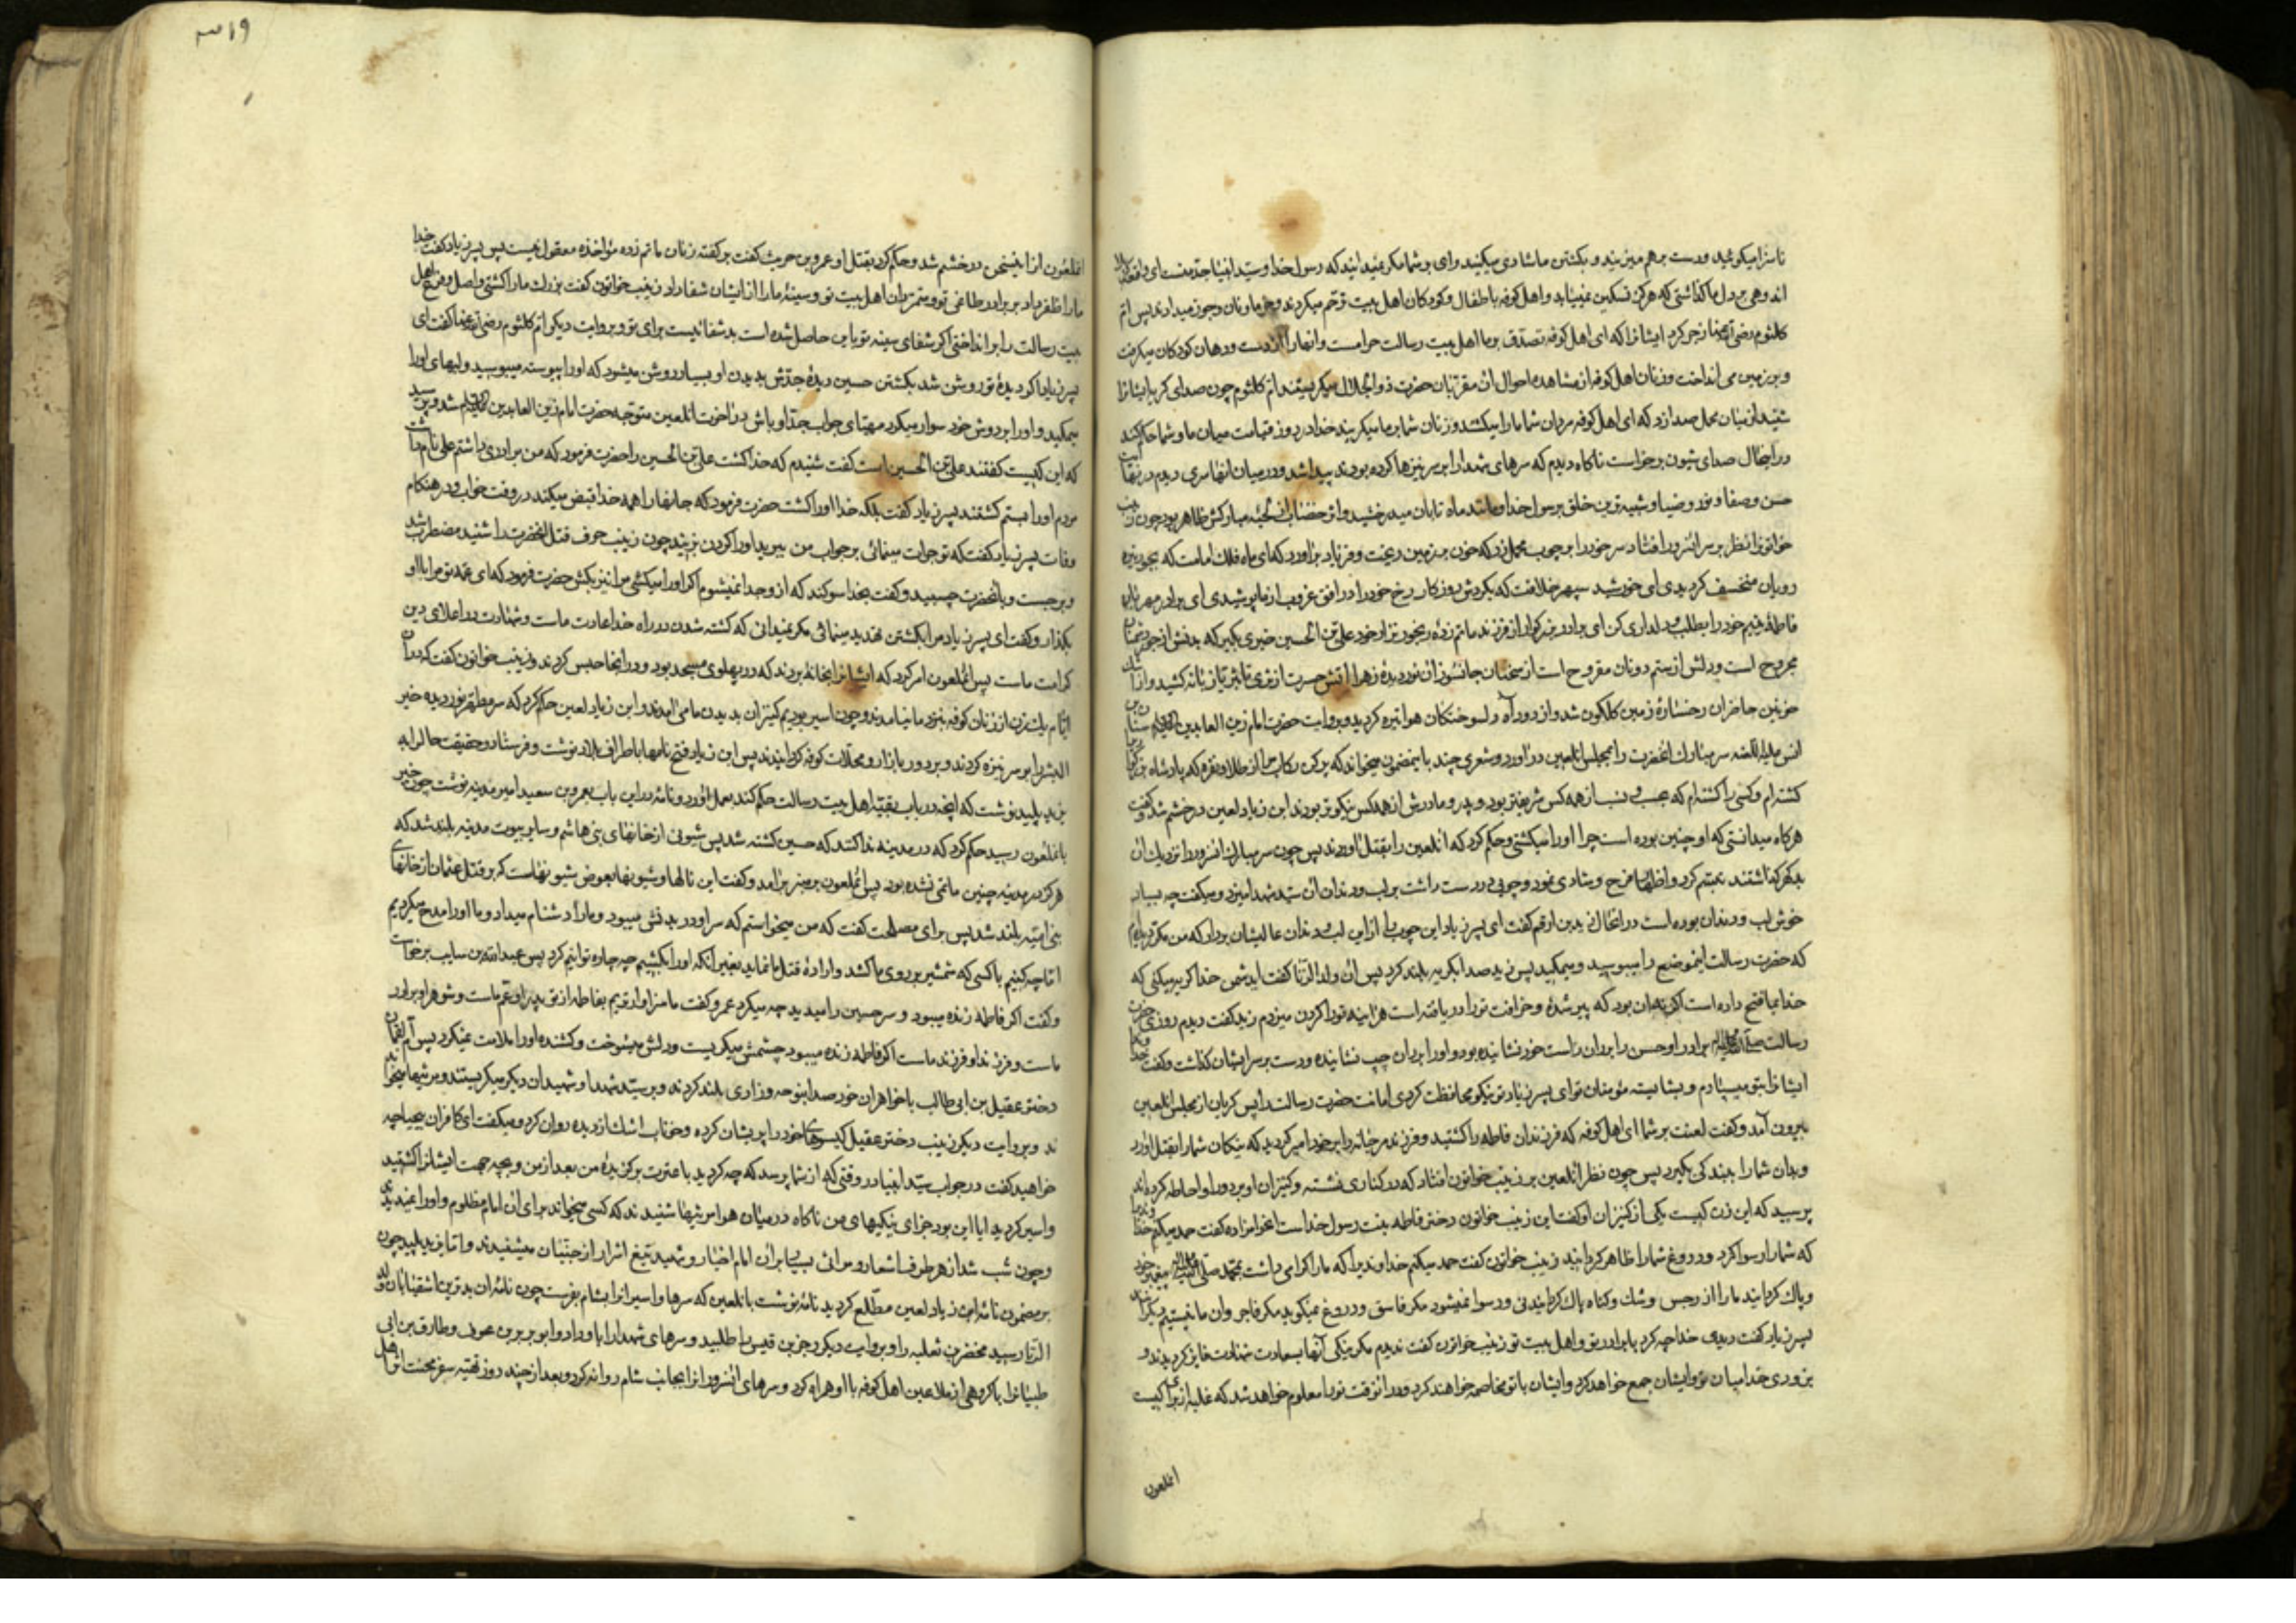 ناسزا میکوئید ودست برهم میزنید و بکشتن ما شادی میکنید وای بر شما مکر نمیدانید که رسول خدا وسید انبیا جد منست ای
اندوهی بر دل ما کذاشتی که هرکز تسکین نمییابد واهل کوفه باطفال وکودکان اهل بیت ترحم میکردند وخرما ونان وجوز میدادند پس ام
کلثوم رضی الله عنها زجر کرد ایشانرا که ای اهل کوفه تصدق بر ما اهل بیت رسالت حرامست وانها را از دست ودهان کودکان میکرفت
وبر زمین می انداخت وزنان اهل کوفه از مشاهده احوال ان مقربان حضرت ذو الجلال میکریستند ام کلثوم چون صدای کریه ایشانرا
شنید از میان محمل صدا زد که ای اهل کوفه مردان شما ما را میکشند وزنان شما بر ما میکریند خدا در روز قیامت میان ما وشما حکم کند
در انحال صدای شیون برخواست ناکاه دیدم که سرهای شهدا را بر سر نیزها کرده بودند پیدا شد ودر میان انها سری دیدم در نهایت
حسن وصفا ونور وضیا وشبیه ترین خلق برسول خدا ومانند ماه تابان میدرخشید واثر خضاب از لحیه مبارکش ظاهر بود چون زینب
خواتونرا نظر بر سر انسرور افتاد سر خود را بر چوب محمل زد که خون بر زمین ریخت وفریاد بر اورد که ای ماه فلک امامت که بجور تیره
رویان منخسف کردیدی ای خورشید سپهر خلافت که بکردش روزکار رخ خود را در افق غروب از ما پوشیدی ای برادر مهربان
فاطمه یتیم خود را بطلب ودلداری کن ای برادر بزرکوار از فرزند ماتم زده رنجور نزار خود علی بن الحسین خبری بکیر که بدنش از جور دشمنان
مجروح است ودلش از ستم دونان مقروح است از سخنان جانسوز ان نور دیده زهرا اتش حسرت از ثری تا بثریا زبانه کشید واز اشک
خونین حاضران رخساره زمین کلکون شد واز دود آه دلسوختکان هوا تیره کردید وبروایت حضرت امام زین العابدین علیه السلام سنان بن
انس علیه اللعنه سر مبارک انحضرت را بمجلس انلعین در اورد وشعری چند باینمضمون میخواند که پر کن رکاب مرا از طلا ونقره که پادشاه بزرکوار را
کشته ام وکسی را کشته ام که بحسب ونسب از همه کس شریفتر بود وپدر ومادرش از همه کس نیکوتر بودند ابن زیاد لعین در خشم شد وکفت
هرکاه میدانستی که او چنین بوده است چرا او را میکشتی وحکم کرد که انلعین را بقتل اوردند پس چون سر مبارک انسرور را نزدیک ان
بدکهر کذاشتند تبسم کرد واظهار فرح وشادی نمود وچوبی در دست داشت بر لب ودندان ان سید شهدا میزد ومیکفت چه بسیار
خوش لب ودندان بوده است در انحال زید بن ارقم کفت ای پسر زیاد این چوب را از این لب ودندان عالیشان بردار که من مکرر دیده ام
که حضرت رسالت اینموضع را میبوسید ومیمکید پس زید صدا بکریه بلند کرد پس ان ولد الزنا کفت ایدشمن خدا کریه میکنی که
خدا بما فتح داده است اکر نه ان بود که پیر شده وخرافت تو را دریافته است هراینه تو را کردن میزدم زید کفت دیدم روزی حضرت
رسالت صلی الله علیه واله برادر او حسن را بر ران راست خود نشانیده بود واو را بر ران چپ نشانیده ودست بر سر ایشان کذاشت وکفت خداوندا
ایشانرا بتو میسپارم وبشایسته مؤمنان تو ای پسر زیاد تو نیکو محافظت کردی امانت حضرت رسالت را پس کریان از مجلس انلعین
بیرون آمد وکفت لعنت بر شما ای اهل کوفه که فرزندان فاطمه را کشتید وفرزند مرجانه را بر خود امیر کردید که نیکان شما را بقتل اورد
وبدان شما را ببندکی بکیرد پس چون نظر انلعین بر زینب خواتون افتاد که در کناری نشسته وکنیزان او بر دور او احاطه کرده اند
پرسید که این زن کیست یکی از کنیزان او کفت این زینب خواتون دختر فاطمه بنت رسول خداست انحرامزاده کفت حمد میکنم خداوندیرا
که شما را رسوا کرد ودروغ شما را ظاهر کردانید زینب خواتون کفت حمد میکنم خداوندیرا که ما را کرامی داشت بمحمد صلی الله علیه واله پیغمبر خود
وپاک کردانید ما را از رجس وشک وکناه پاک کردانیدنی ورسوا نمیشود مکر فاسق ودروغ نمیکوید مکر فاجر وان ما نیستیم دیکرانند
پسر زیاد کفت دیدی خدا چه کرد با برادر تو واهل بیت تو زینب خواتون کفت ندیدم مکر نیکی آنها بسعادت شهادت فایز کردیدند و
بزودی خدا میان تو وایشان جمع خواهد کرد وایشان با تو مخاصمه خواهند کرد ودر انوقت تو را معلوم خواهد شد که غلبه از برای کیست
انملعون
۳۱۹
انملعون از اینسخن در خشم شد وحکم کرد بقتل او عمرو بن حریث کفت بر کفته زنان ماتم زده مؤاخذه معقول نیست پس پسر زیاد کفت خدا
ما را ظفر داد بر برادر طاغی تو ومتمردان اهل بیت تو وسینه ما را از ایشان شفا داد زینب خواتون کفت بزرک ما را کشتی واصل وفرع اهل
بیت رسالت را بر انداختی اکر شفای سینه تو باین حاصل شده است بد شفائیست برای تو وبروایت دیکر ام کلثوم رضی الله عنها کفت ای
پسر زیاد اکر دیده تو روشن شد بکشتن حسین دیده جدش بدیدن او بسیار روشن میشود که او را پیوسته میبوسید ولبهای او را
میمکید واو را بر دوش خود سوار میکرد مهیای جواب جد او باش در آخرت انلعین متوجه حضرت امام زین العابدین علیه السلام شد وپرسید
که این کیست کفتند علی بن الحسین است کفت شنیدم که خدا کشت علی بن الحسین را حضرت فرمود که من برادری داشتم علی نام داشت
مردم او را بستم کشتند پسر زیاد کفت بلکه خدا او را کشت حضرت فرمود که جانها را همه خدا قبض میکند در وقت خواب ودر هنکام
وفات پسر زیاد کفت که تو جرات مینمائی بر جواب من ببرید او را کردن بزنید چون زینب حرف قتل انحضرت را شنید مضطرب شد
وبرجست وبانحضرت چسبید وکفت بخدا سوکند که از او جدا نمیشوم اکر او را میکشی مرا نیز بکش حضرت فرمود که ای عمه تو مرا با او
بکذار وکفت ای پسر زیاد مرا بکشتن تهدید مینمائی مکر نمیدانی که کشته شدن در راه خدا عادت ماست وشهادت در اعلای دین
کرامت ماست پس انملعون امر کرد که ایشانرا بخانه بردند که در پهلوی مسجد بود ودر انجا حبس کردند وزینب خواتون کفت که در ان
ایام یک زن از زنان کوفه بنزد ما نیامدند وچون اسیر بودیم کنیزان بدیدن ما می آمدند وابن زیاد لعین حکم کرد که سر مطهر نور دیده خیر
البشر را بر سر نیزه کردند وبر دور بازار ومحلات کوفه کردانیدند پس ابن زیاد فتح نامها باطراف بلاد نوشت وفرستاد وحقیقت حال را به
یزید پلید نوشت که انچه در باب بقیه اهل بیت رسالت حکم کند بعمل اورد ونامه در این باب بعمرو بن سعید امیر مدینه نوشت چون خبر
بانملعون رسید حکم کرد که در مدینه ندا کنند که حسین کشته شد پس شیونی از خانهای بنی هاشم وسایر بیوت مدینه بلند شد که
هرکز در مدینه چنین ماتمی نشده بود پس انملعون بر منبر بر آمد وکفت این نالها وشیونها بعوض شیونهاست که بر قتل عثمان از خانهای
بنی امیه بلند شد پس برای مصلحت کفت که من میخواستم که سر او در بدنش میبود وما را دشنام میداد وما او را مدح میکردیم
اما چه کنیم با کسی که شمشیر بر روی ما کشد واراده قتل ما نماید بغیر انکه او را بکشیم چه چاره توانیم کرد پس عبد الله بن سایب برخواست
وکفت اکر فاطمه زنده میبود وسر حسین را میدید چه میکرد عمرو کفت ما سزاوارتریم بفاطمه از تو پدر او عم ماست وشوهر او برادر
ماست وفرزند او فرزند ماست اکر فاطمه زنده میبود چشمش میکریست ودلش میسوخت وکشنده او را ملامت نمیکرد پس ام لقمان
دختر عقیل بن ابی طالب با خواهران خود صدا بنوحه وزاری بلند کردند وبر سید شهدا وشهیدان دیکر میکریستند ومرثیها میخواندند
ند وبروایت دیکر زینب دختر عقیل کیسوهای خود را پریشان کرده وخوناب اشک از دیده روان کرد ومیکفت ای کافران بیحیا چه
خواهید کفت در جواب سید انبیا در وقتی که از شما پرسد که چه کردید با عترت برکزیده من بعد از من وبچه جهت ایشانرا کشتید
واسیر کردید ایا این بود جزای نیکیهای من ناکاه در میان هوا مرثیها شنیدند که کسی میخواند برای ان امام مظلوم واو را نمیدیدند
وچون شب شد از هر طرف اشعار ومراثی بسیار برای امام اخیار وشهید تیغ اشرار از جنیان میشنیدند واما یزید پلید چون
بر مضمون نامه ابن زیاد لعین مطلع کردید نامه نوشت بانلعین که سرها واسیرانرا بشام بفرست چون نامه ان بدترین اشقیا بان ولد
الزنا رسید مخفر بن ثعلبه را وبروایت دیکر زجر بن قیس را طلبید وسرهای شهدا را باو داد وابو بردة بن عوف وطارق بن ابی
ظبیانرا با کروهی از ملاعین اهل کوفه با او همراه کرد وسرهای انسرورانرا بجانب شام روانه کرد وبعد از چند روز تهیه سفر محنت اثر اهل